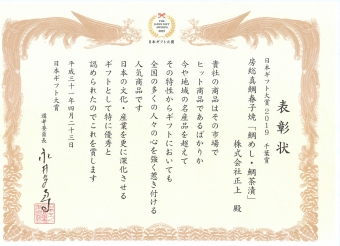 THE JAPAN GIFT AWARDS 2019
日本ギフト大賞
表彰状
日本ギフト大賞2019 千葉賞
房総真鯛春子焼「鯛めし・鯛茶漬」
株式会社正上 殿
貴社の商品はその市場で
ヒット商品であるばかりか
今や地域の名産品を超えて
その特性からギフトにおいても
全国の多くの人々の心を強く惹き付ける
人気商品です
日本の文化・産業を更に深化させる
ギフトとして特に優秀と
認められたのでこれを賞します
平成三十一年四月二十三日
日本ギフト大賞
選考委員長